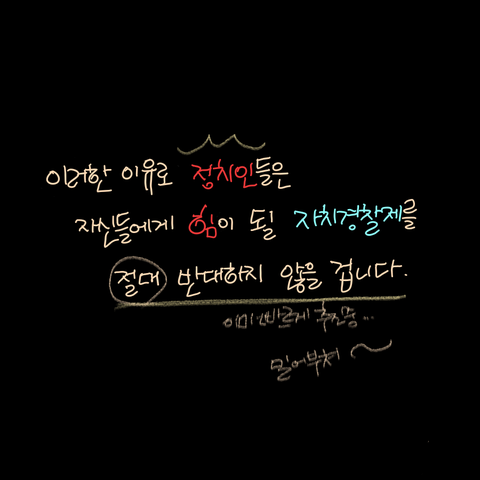 이러한 이유로 정치인들은
자신들에게 힘이 될 자치경찰제를
절대 반대하지 않을 겁니다.
이미 빠르게 추진중...
밀어부쳐 ~